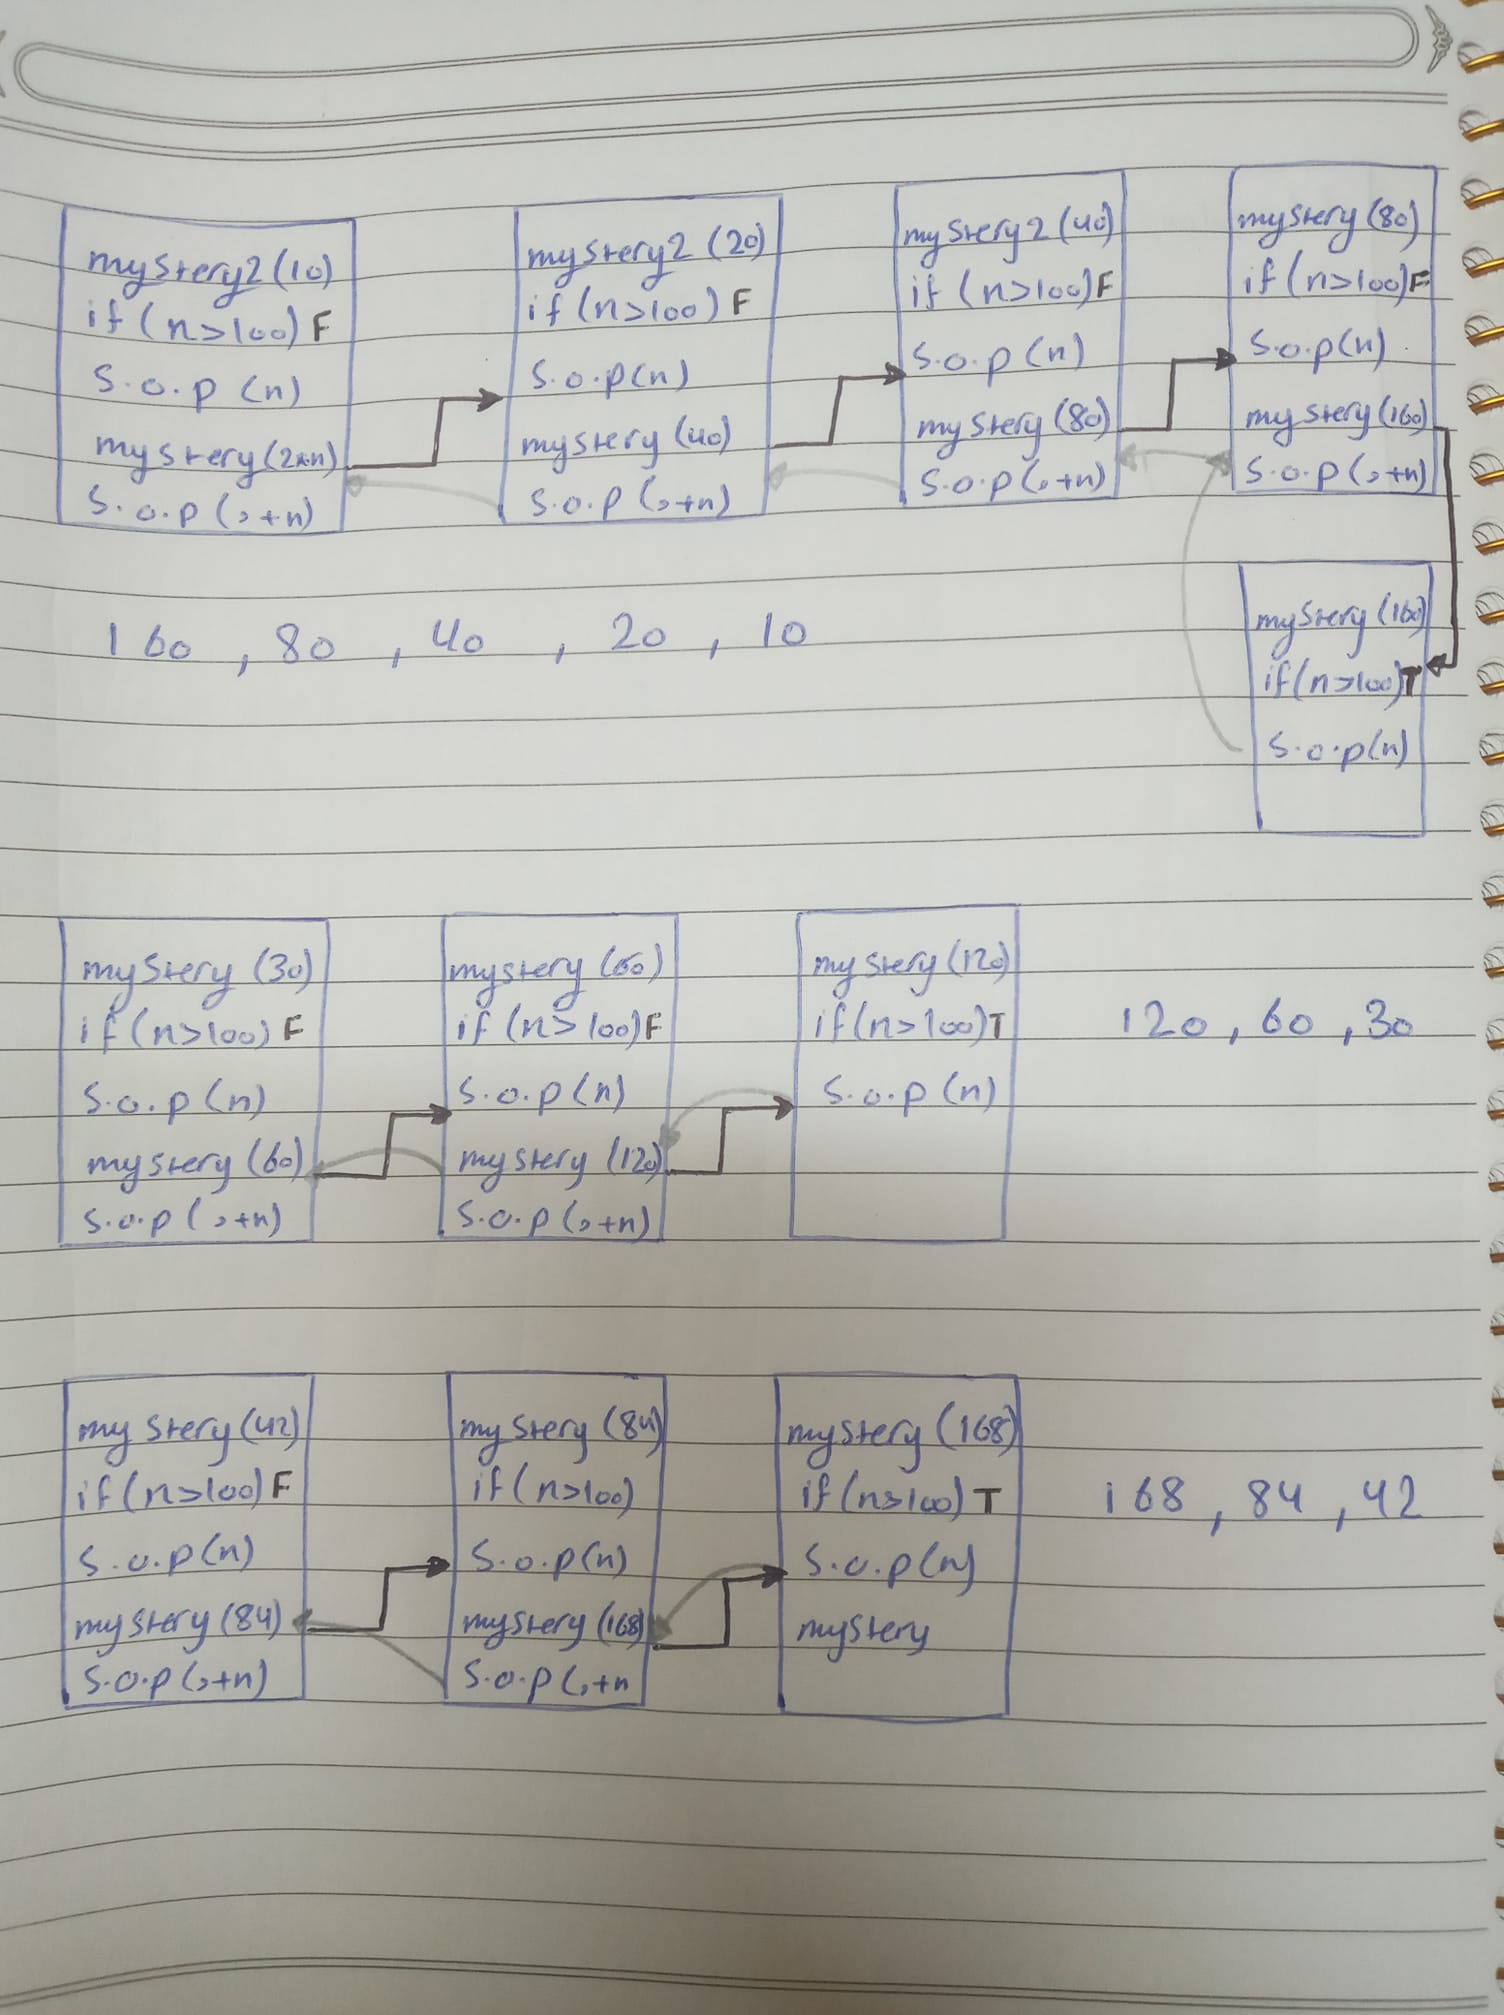 mystery2 (10)
if (n>100) F
S.o.p (n)
mystery (2*n)
S.o.p (,+n)
mystery2 (20)
if (n>100) F
S.o.p(n)
mystery (40)
S.o.p (,+n)
mystery2 (40)
if (n>100) F
S.o.p (n)
mystery (80)
S.o.p (,+n)
mystery (80)
if (n>100) F
S.o.p(n)
mystery (160)
S.o.p (,+n)
mystery (160)
if (n>100) T
S.o.p(n)
160 , 80 , 40 , 20 , 10
mystery (30)
if (n>100) F
S.o.p (n)
mystery (60)
S.o.p (,+n)
mystery (60)
if (n>100) F
S.o.p (n)
mystery (120)
S.o.p (,+n)
mystery (120)
if (n>100) T
S.o.p (n)
120 , 60 , 30
mystery (42)
if (n>100) F
S.o.p(n)
mystery (84)
S.o.p (,+n)
mystery (84)
if (n>100)
S.o.p(n)
mystery (168)
S.o.p (,+n
mystery (168)
if (n>100) T
S.o.p (n)
mystery
168 , 84 , 42